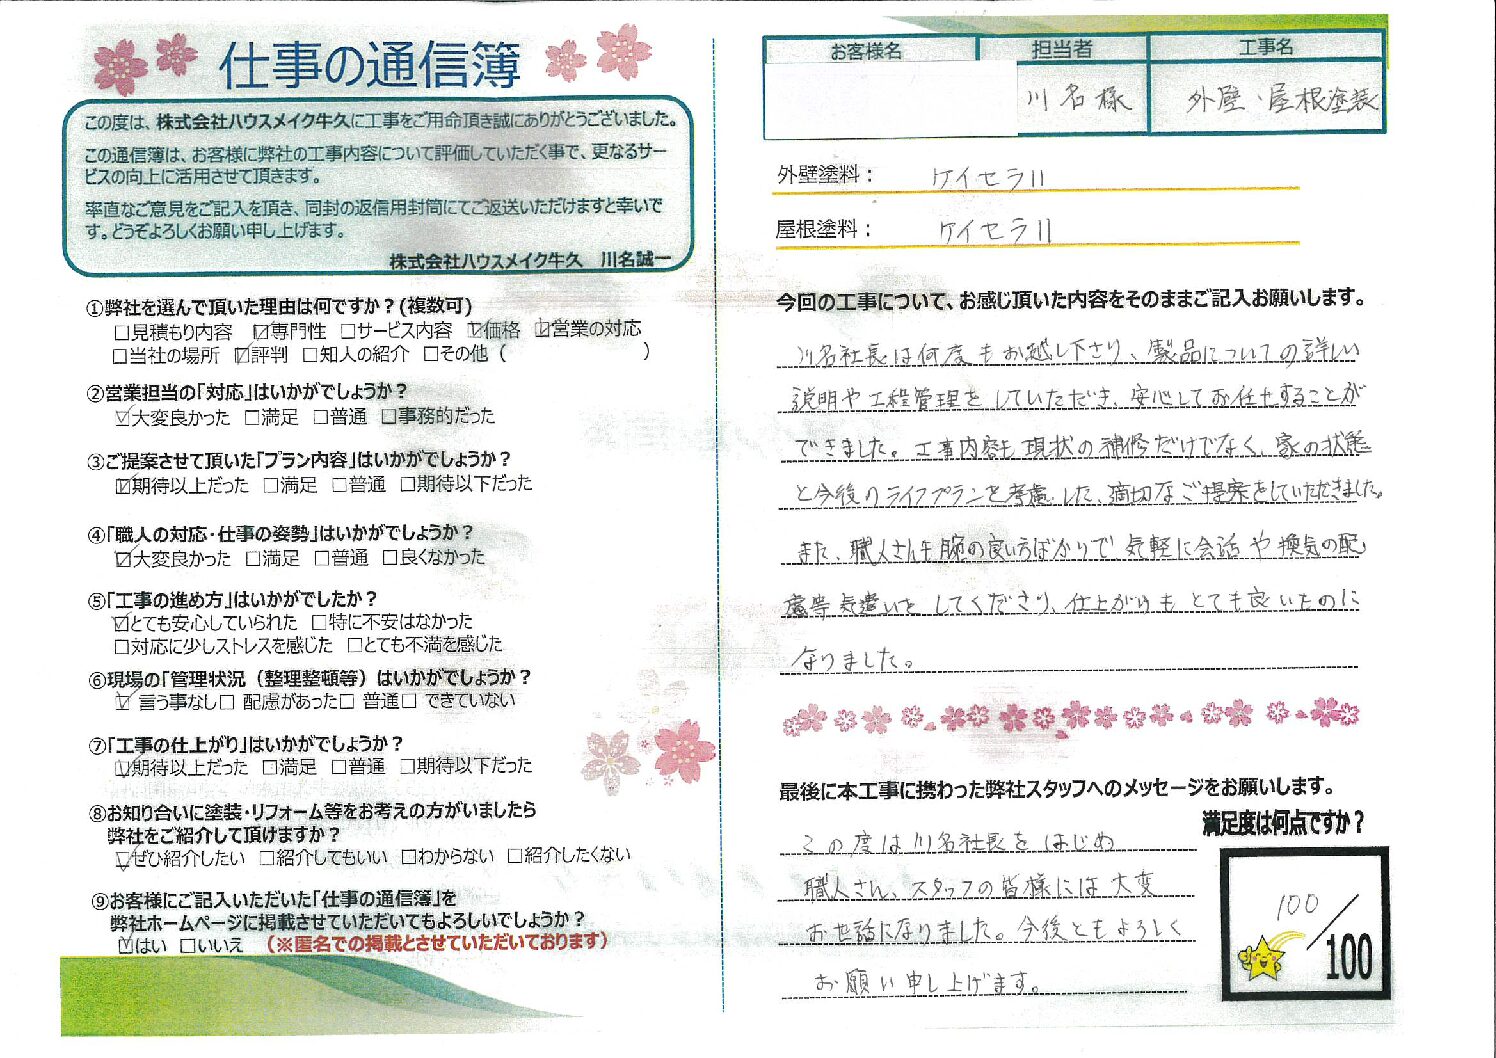 仕事の通信簿
この度は、株式会社ハウスメイク牛久に工事をご用命頂き誠にありがとうございました。
この通信簿は、お客様に弊社の工事内容について評価していただく事で、更なるサー
ビスの向上に活用させて頂きます。
率直なご意見をご記入を頂き、同封の返信用封筒にてご返送いただけますと幸いで
す。どうぞよろしくお願い申し上げます。
株式会社ハウスメイク牛久　川名誠一
①弊社を選んで頂いた理由は何ですか？(複数可)
□見積もり内容 ☑専門性 □サービス内容 ☑価格 ☑営業の対応
□当社の場所 ☑評判 □知人の紹介 □その他（　　　　　　）
②営業担当の「対応」はいかがでしょうか？
☑大変良かった □満足 □普通 □事務的だった
③ご提案させて頂いた「プラン内容」はいかがでしょうか？
☑期待以上だった □満足 □普通 □期待以下だった
④「職人の対応・仕事の姿勢」はいかがでしょうか？
☑大変良かった □満足 □普通 □良くなかった
⑤「工事の進め方」はいかがでしたか？
☑とても安心していられた □特に不安はなかった
□対応に少しストレスを感じた □とても不満を感じた
⑥現場の「管理状況（整理整頓等）はいかがでしょうか？
☑ 言う事なし□ 配慮があった□ 普通□ できていない
⑦「工事の仕上がり」はいかがでしょうか？
☑期待以上だった □満足 □普通 □期待以下だった
⑧お知り合いに塗装・リフォーム等をお考えの方がいましたら
弊社をご紹介して頂けますか？
☑ぜひ紹介したい □紹介してもいい □わからない □紹介したくない
⑨お客様にご記入いただいた「仕事の通信簿」を
弊社ホームページに掲載させていただいてもよろしいでしょうか？
☑はい □いいえ （※匿名での掲載とさせていただいております）
お客様名 担当者 工事名
川名様 外壁・屋根塗装
外壁塗料： ケイセラII
屋根塗料： ケイセラII
今回の工事について、お感じ頂いた内容をそのままご記入お願いします。
川名社長は何度もお越し下さり、製品についての詳しい
説明や工程管理をしていただき、安心してお任せすることが
できました。工事内容も現状の補修だけでなく、家の状態
と今後のライフプランを考慮した、適切なご提案をしていただきました。
また、職人さんも腕の良い方ばかりで気軽に会話や換気の配
慮等気遣いをしてくださり、仕上がりもとても良いものに
なりました。
最後に本工事に携わった弊社スタッフへのメッセージをお願いします。
満足度は何点ですか？
この度は川名社長をはじめ
職人さん、スタッフの皆様には大変
お世話になりました。今後ともよろしく
お願い申し上げます。
100/100